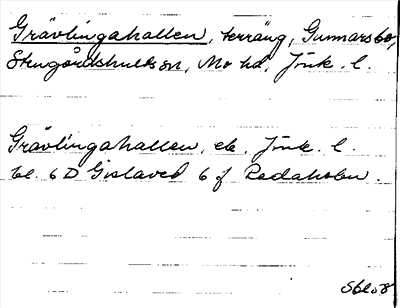 Grävlingahallen, terräng, Gunnarsbo,
Stengårdshults sn, Mo hd, Jönk. l.
Grävlingahallen, ek. Jönk. l.
bl. 6 D Gislaved 6 f Radaholm.